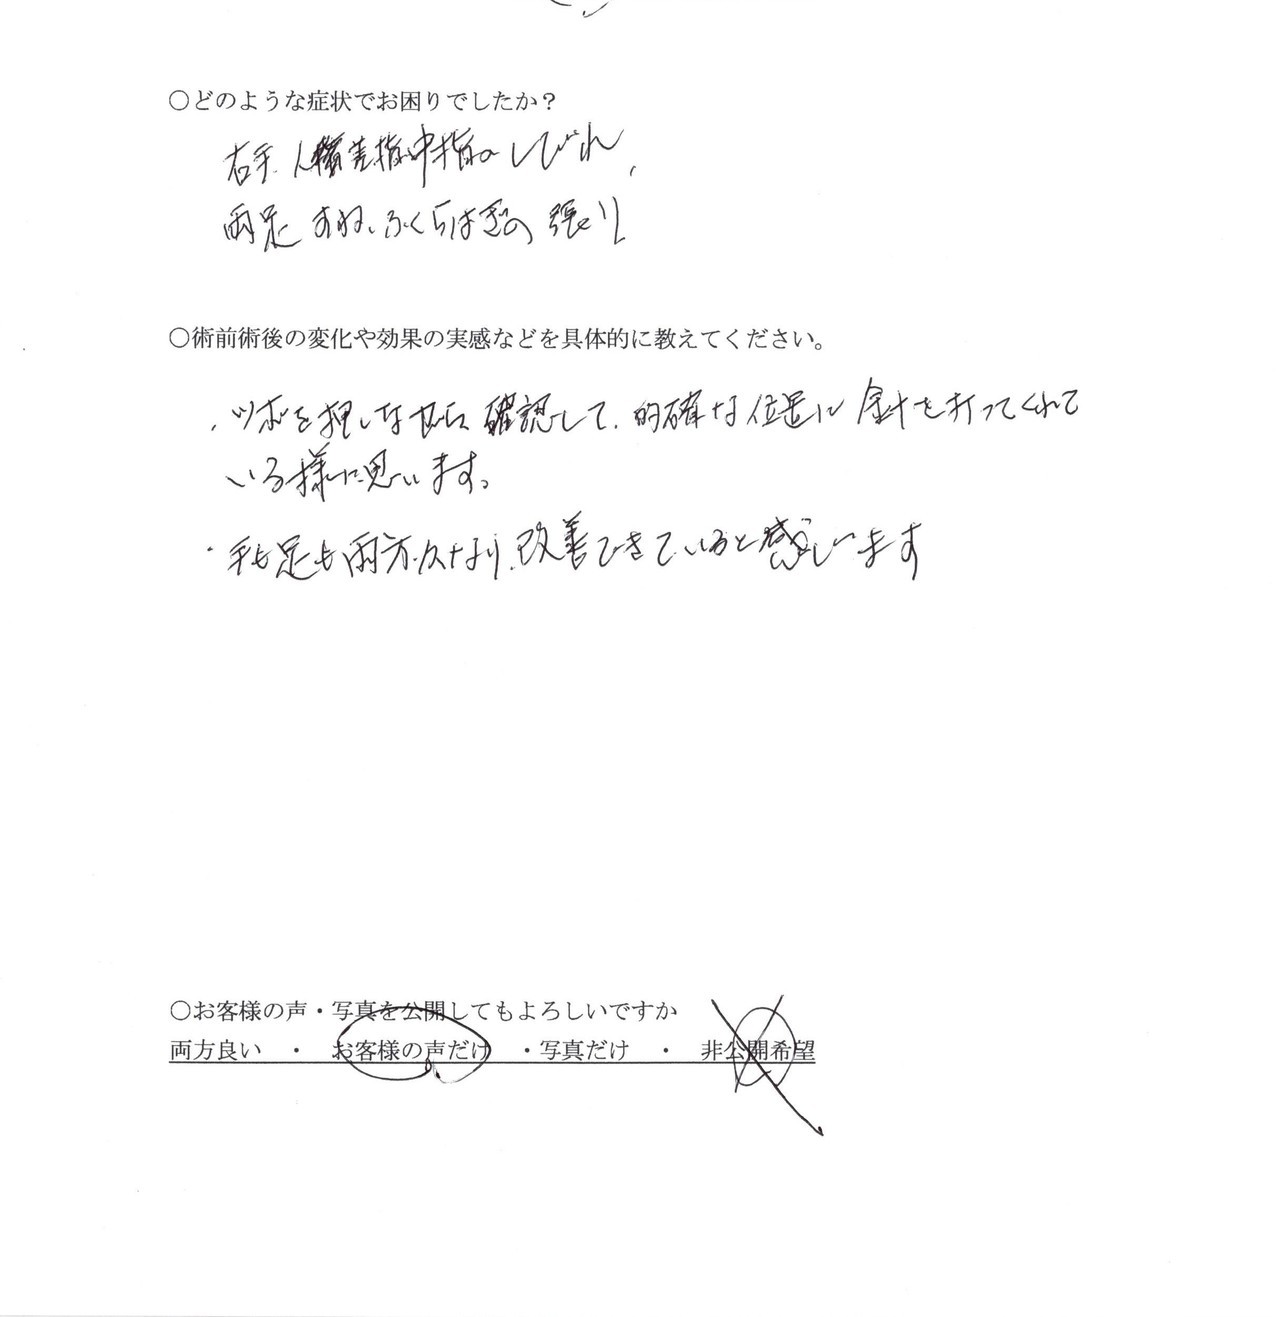 ○どのような症状でお困りでしたか？
右手、人差指中指のしびれ、
両足 すね、ふくらはぎの 張り
○術前術後の変化や効果の実感などを具体的に教えてください。
・ツボを押しながら、確認して、的確な位置に 針を打ってくれて
いる様に思います。
・手も足も両方、かなり、改善できていると感じます
○お客様の声・写真を公開してもよろしいですか
両方良い ・ お客様の声だけ ・写真だけ ・ 非公開希望